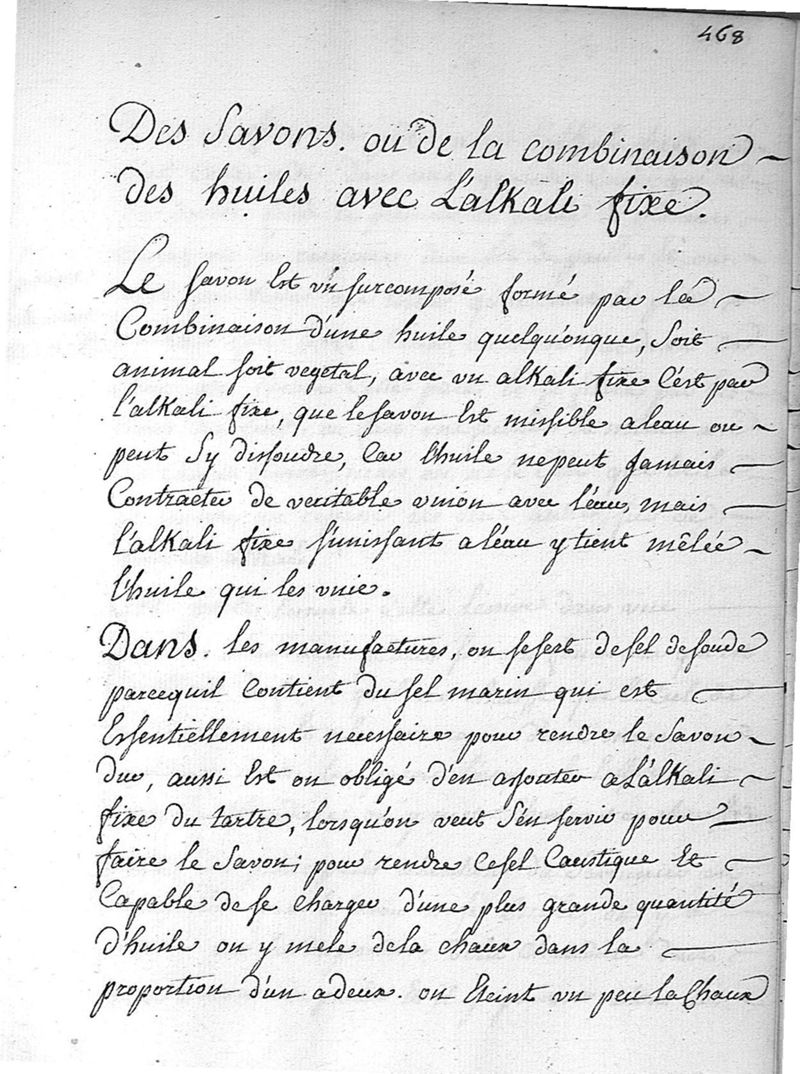 468
Des Savons. ou de la combinaison
des huiles avec L'alkali fixe.
Le savon Est vn surcomposé formé par la
Combinaison d'une huile quelqu'onque, Soit
animal soit vegetal, avec vn alkali fixe C'est par
l'alkali fixe, que le savon Est missible a leau ou
peut S'y dissoudre, Car l'huile ne peut Jamais
Contracter de veritable vnion avec l'eau, mais
l'alkali fixe s'unissant a léau y tient mêlée
l'huile qui les vnie.
Dans. les manufactures, on se sert de sel de soude
parcequil Contient du sel marin qui est
Essentiellement necessaire pour rendre le Savon
dur, aussi Est on obligé d'en ajouter a L'alkali
fixe du tartre, lorsqu'on veut S'en servir pour
faire le Savon; pour rendre Ce sel Caustique Et
Capable de se charger d'une plus grande quantité
d'huile on y mele de la chaux dans la
proportion d'un a deux. on Eteint vn peu la Chaux